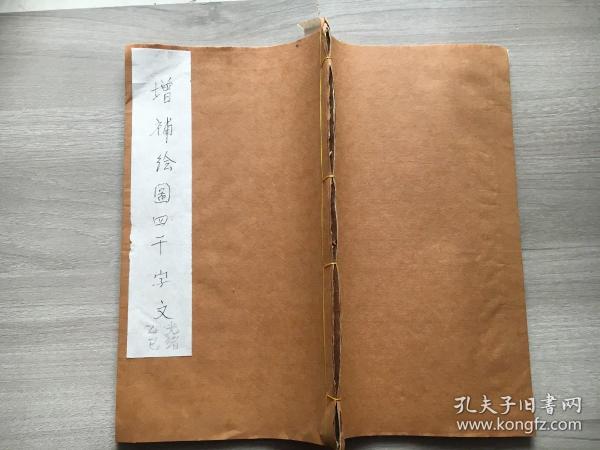 增補绘圖四千字文
光緒
乙巳
孔夫子旧書网
www.kongfz.com